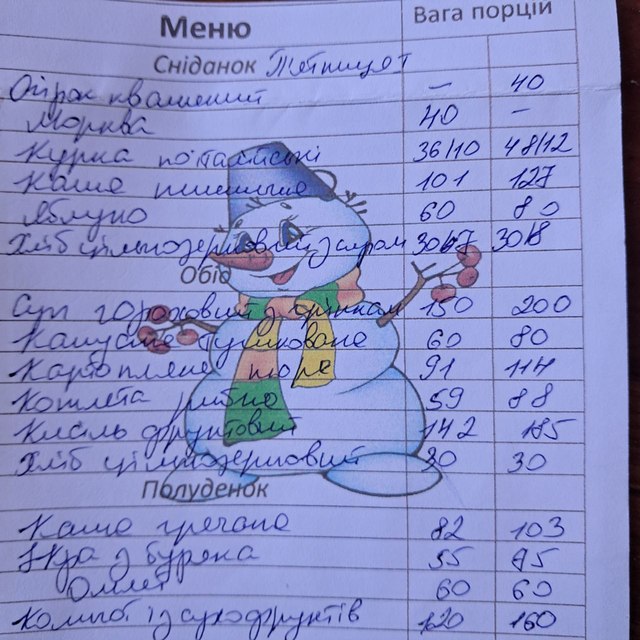 Меню Вага порцій
Сніданок Пятниця
Огірок квашений — 40
Морква 40 —
Курка по італійські 36/10 48/12
Каша пшенична 101 127
Яблуко 60 80
Хліб цільнозерновий з сиром
Обід
Суп гороховий з грінками 150 200
Капуста тушкована 60 80
Картопляне пюре 91 114
Котлета рибна 59 88
Кисіль фруктовий 142 185
Хліб цільнозерновий 30 30
Полуденок
Каша гречана 82 103
Ікра з буряка 55
Омлет 60 60
Компот із сухофруктів 120 160